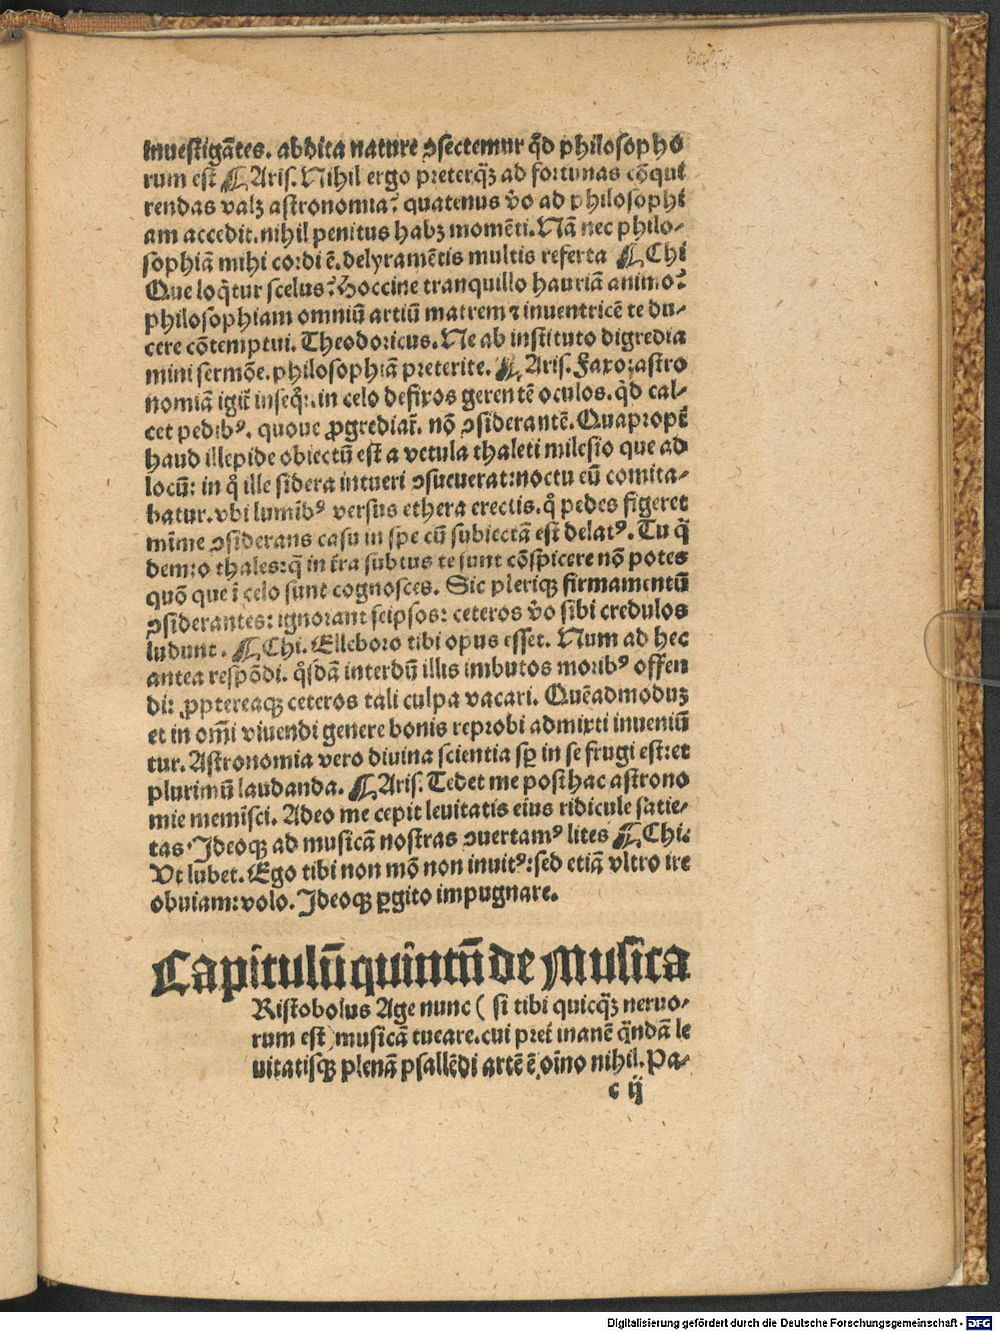 inuestigãtes. abdita nature ꝯsectemur qd̉ philosopho
rum est ¶ Aris. Nihil ergo preterqȝ ad fortunas cõqui
rendas valȝ astronomia? quatenus vo̓ ad philosophi
am accedit. nihil penitus habȝ momẽti. Nã nec philo⸗
sophiã mihi cordi ẽ. delyramẽtis multis referta ¶ Chi
Que loq̃tur scelus? Hoccine tranquillo hauriã animo?
philosophiam omniũ artiũ matrem ⁊ inuentricẽ te du⸗
cere cõtemptui. Theodoricus. Ne ab instituto digredia
mini sermõe. philosophiã preterite. ¶ Aris. Faxo: astro
nomiã igit̃ inseqr̉. in celo defixos gerentẽ oculos. qd̉ cal⸗
cet pedibꝰ. quoue ꝓgrediat̃. nõ ꝯsiderantẽ. Quapropt̃
haud illepide obiectũ est a vetula thaleti milesio que ad
locũ: in q̊ ille sidera intueri ꝯsueuerat: noctu eũ comita⸗
batur. vbi lumĩbꝰ versus ethera erectis. q̊ pedes figeret
mĩme ꝯsiderans casu in spe cũ subiectã est delatꝰ. Tu q̃
dem: o thales: q̃ in t̃ra subtus te sunt cõspicere nõ potes
quõ que ĩ celo sunt cognosces. Sic pleriqꝫ firmamentũ
ꝯsiderantes: ignorant seipsos: ceteros vo̓ sibi credulos
ludunt. ¶ Chi. Elleboro tibi opus esset. Num ad hec
antea respõdi. q̊sdã interdũ illis imbutos moribꝰ offen
di: ꝓptereaqꝫ ceteros tali culpa vacari. Quẽadmoduȝ
et in om̃i viuendi genere bonis reprobi admixti inueniũ
tur. Astronomia vero diuina scientia sꝑ in se frugi est: et
plurimũ laudanda. ¶ Aris. Tedet me posthac astrono
mie memĩsci. Adeo me cepit leuitatis eius ridicule satie⸗
tas. Ideoqꝫ ad musicã nostras ꝯuertamꝰ lites ¶ Chi.
Vt lubet. Ego tibi non mõ non inuitꝰ: sed etiã vltro ire
obuiam: volo. Ideoqꝫ ꝑgito impugnare.
Capitulũ quintũ de Musica
Ristobolus Age nunc ( si tibi quicqȝ neruo⸗
rum est ) musicã tueare. cui pret̃ inanẽ q̃ndã le
uitatisqꝫ plenã psallẽdi artẽ ẽ oĩno nihil. Pa⸗
c ij
Digitalisierung gefördert durch die Deutsche Forschungsgemeinschaft - DFG